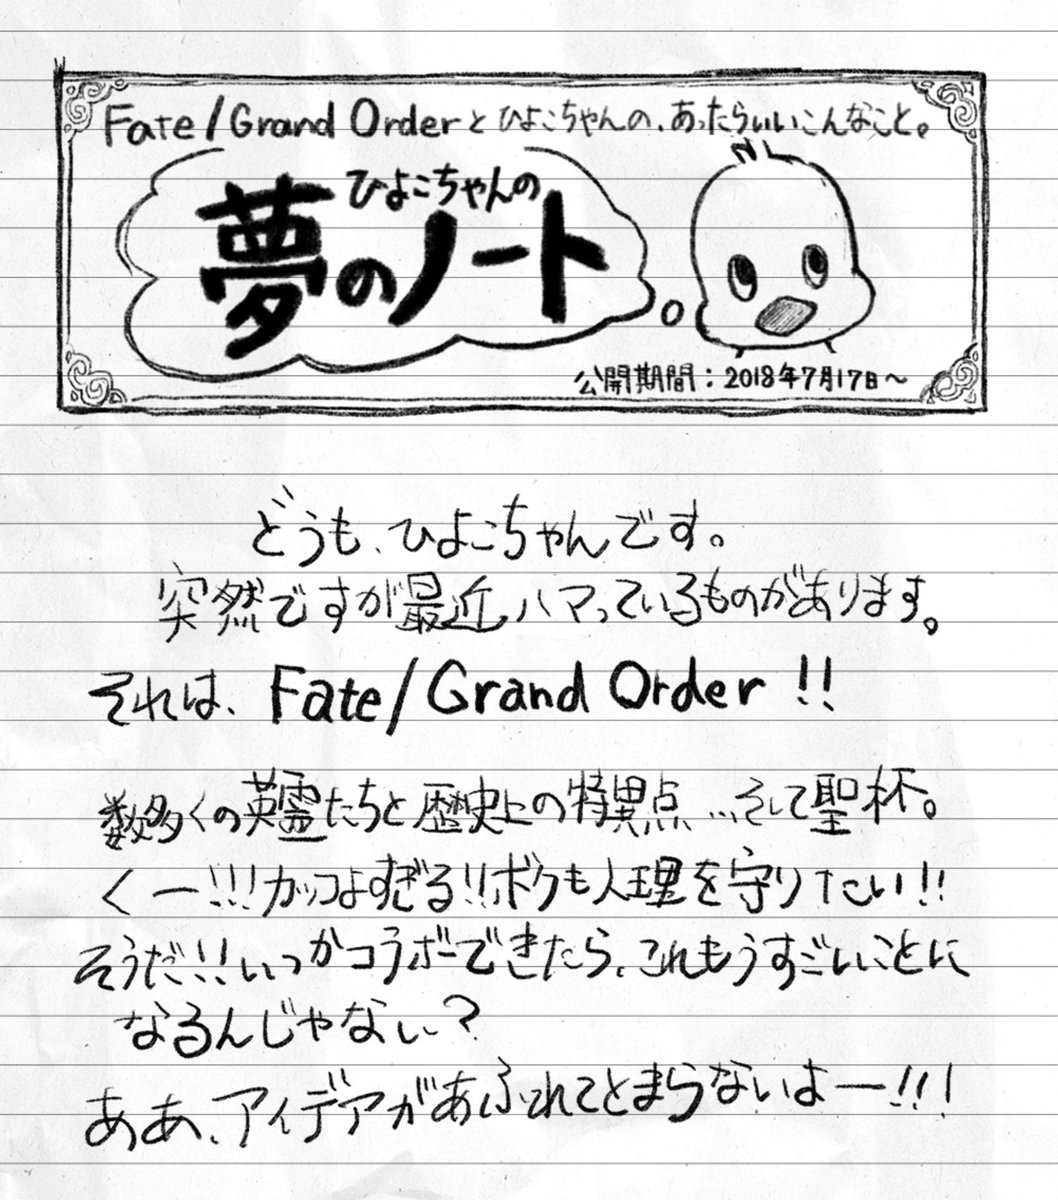 Fate/Grand Orderとひよこちゃんの、あったらいいこんなこと。
ひよこちゃんの
夢のノート
公開期間：2018年7月17日～
どうも、ひよこちゃんです。
突然ですが最近ハマっているものがあります。
それは、Fate/Grand Order!!
数多くの英霊たちと歴史上の特異点…そして聖杯。
くー!!!カッコよすぎる!!ボクも人理を守りたい!!
そうだ!!いつかコラボできたら、これもうすごいことに
なるんじゃない？
ああ、アイデアがあふれてとまらないよー!!!